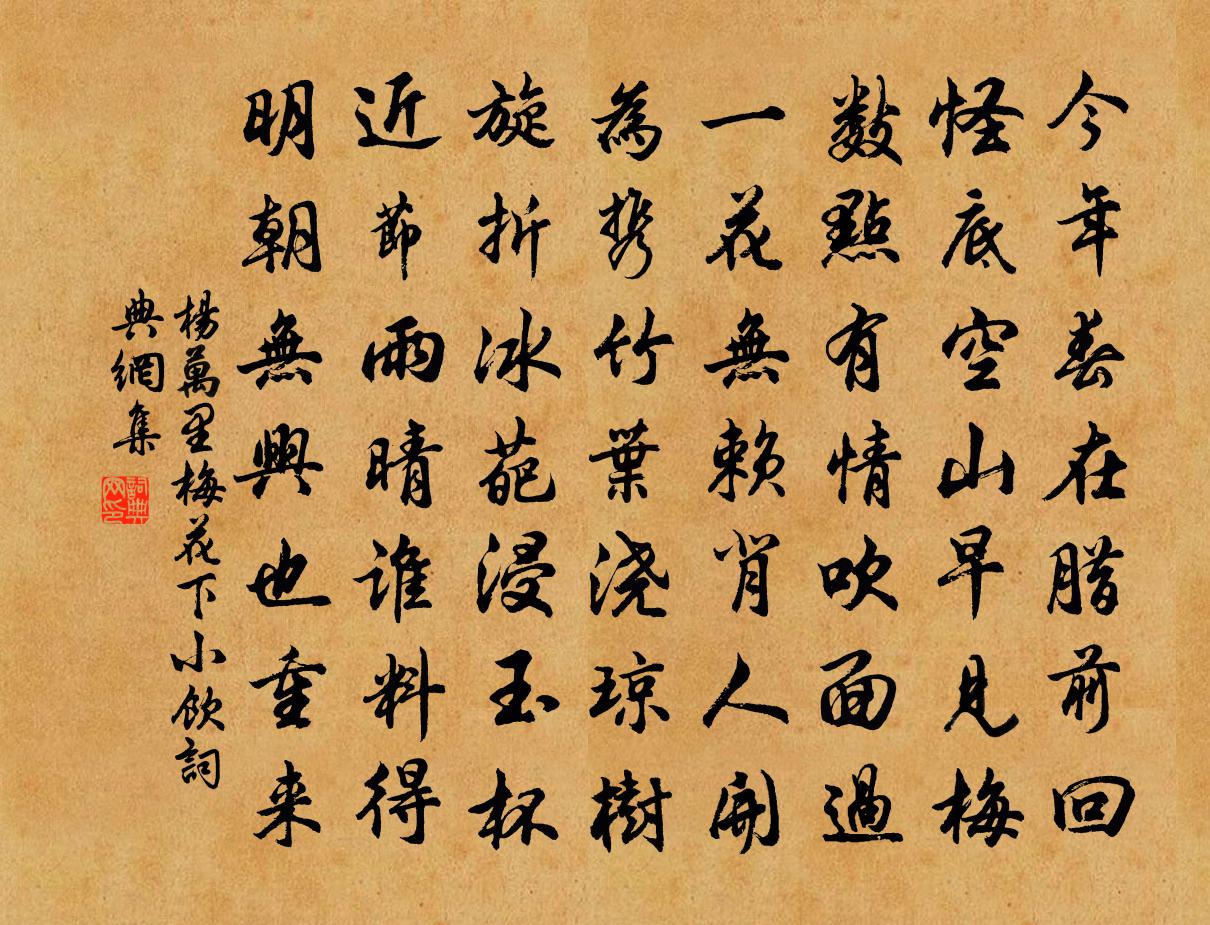 今年春在臘前回
怪底空山早見梅
數點有情吹面過
一花無賴背人開
為携竹葉澆瓊樹
旋折冰葩浸玉杯
近節雨晴誰料得
明朝無興也重来
楊萬里梅花下小飲詞
典網集
詞典
网印